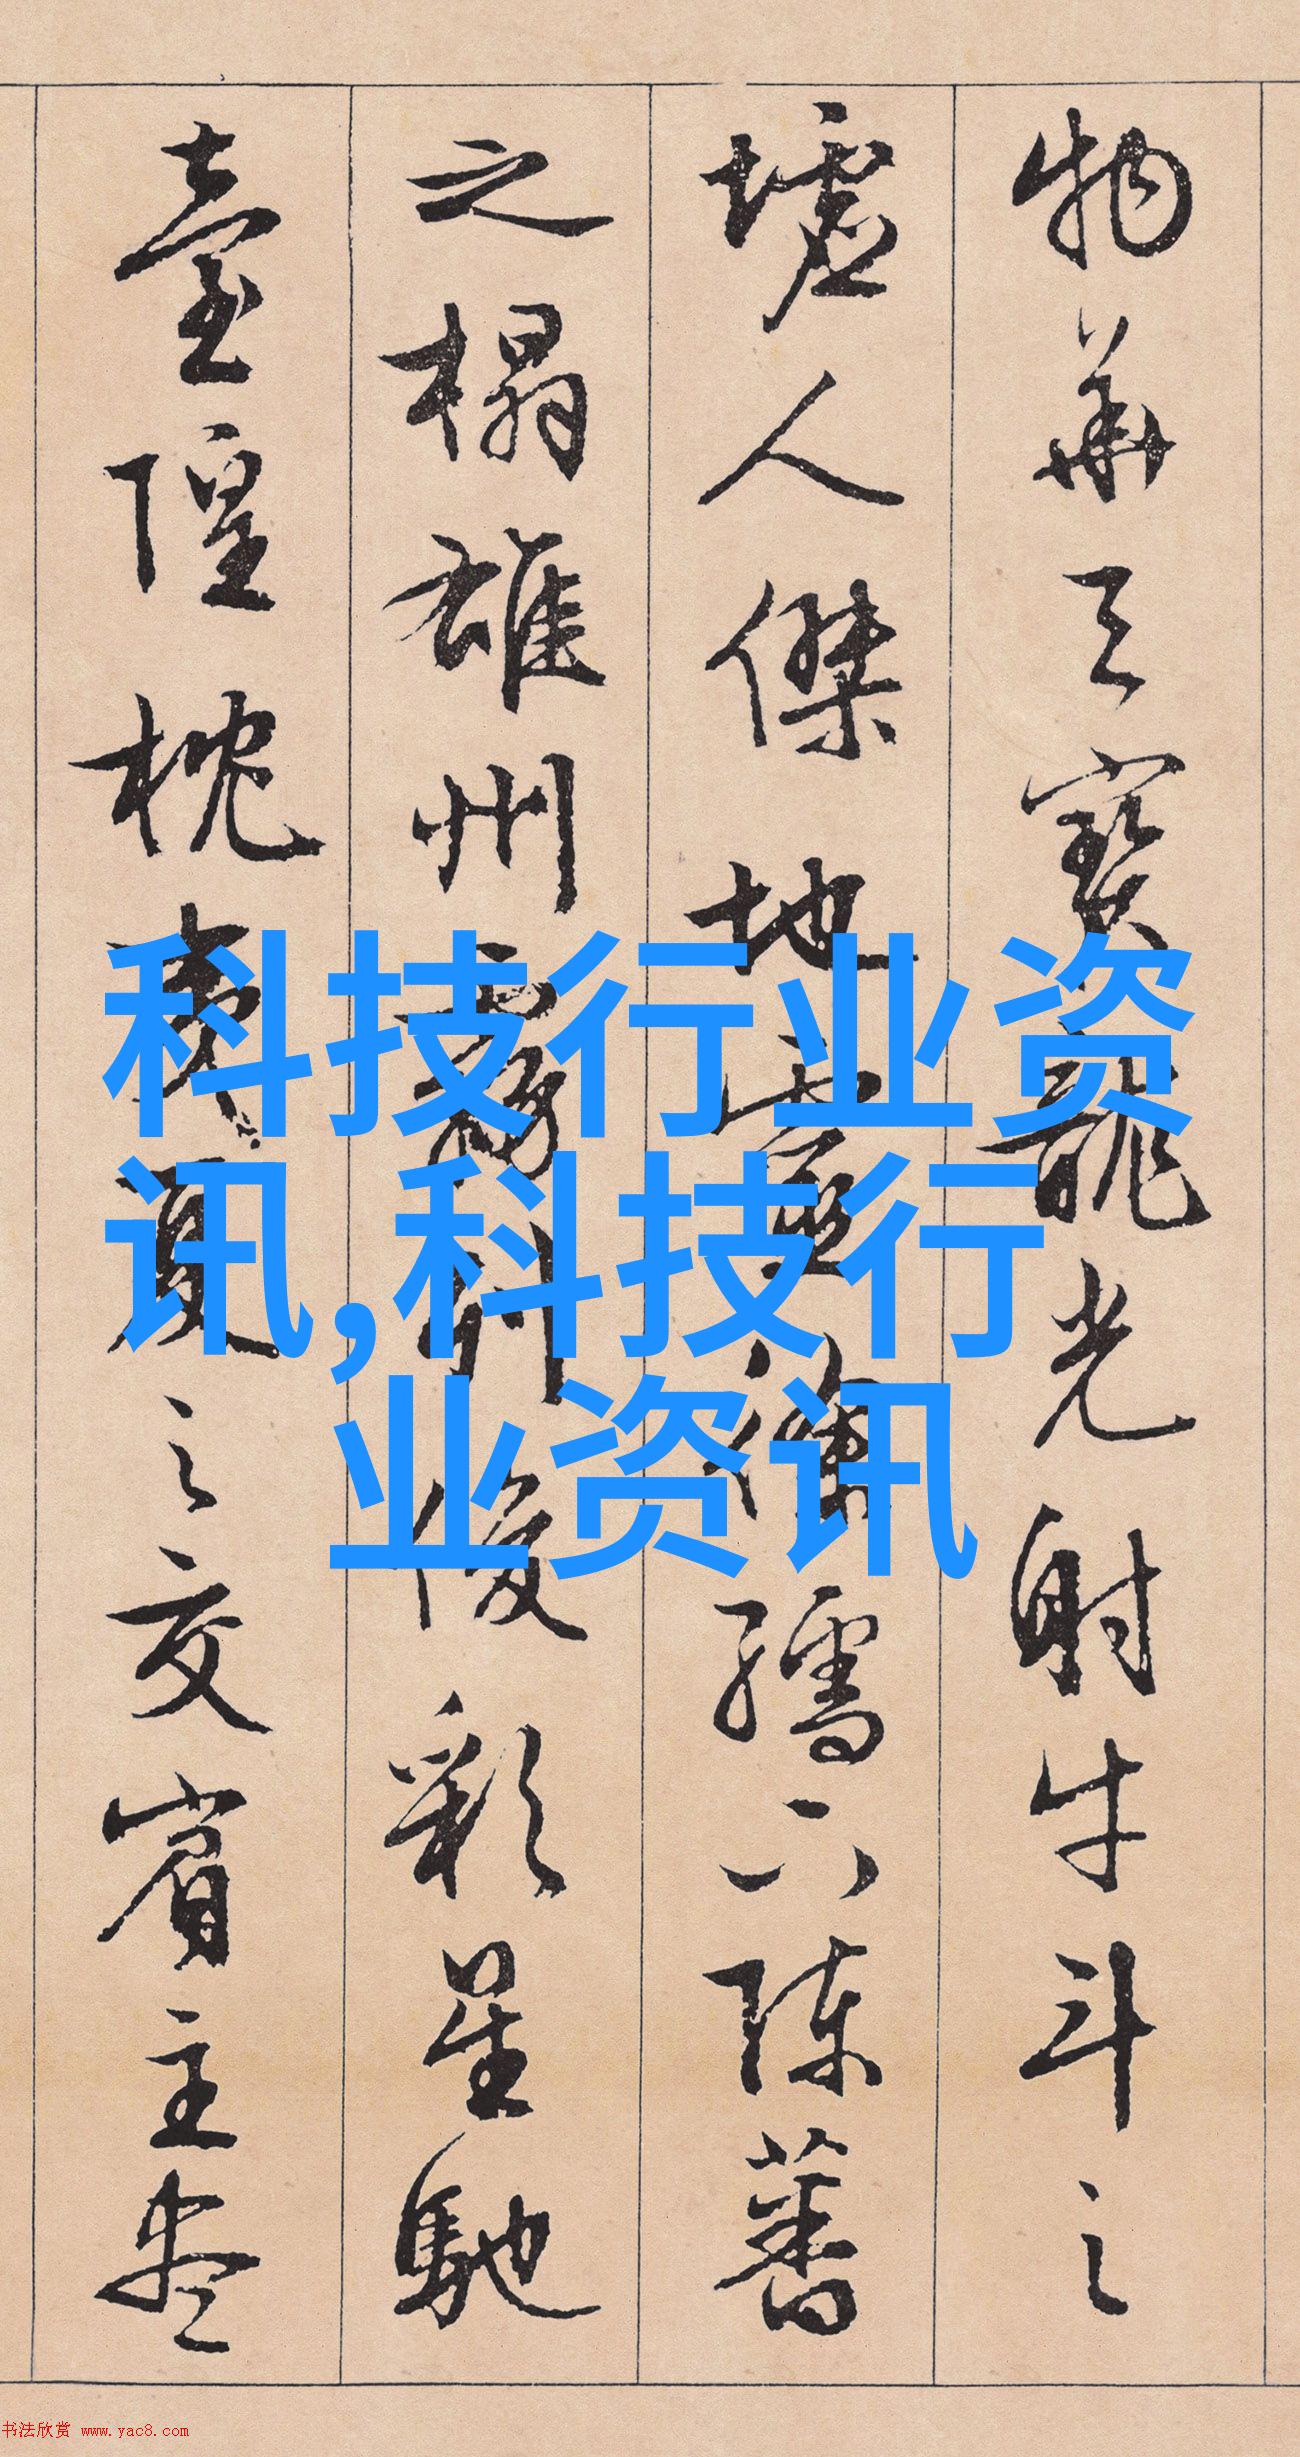 物華天寶龍光射牛斗之
墟人傑地靈徐孺下陳蕃
之榻雄州霧列俊彩星馳
臺隍枕夷夏之交賓主盡
科技行业资
讯,科技行
业资讯
书法欣赏 www.yac8.com